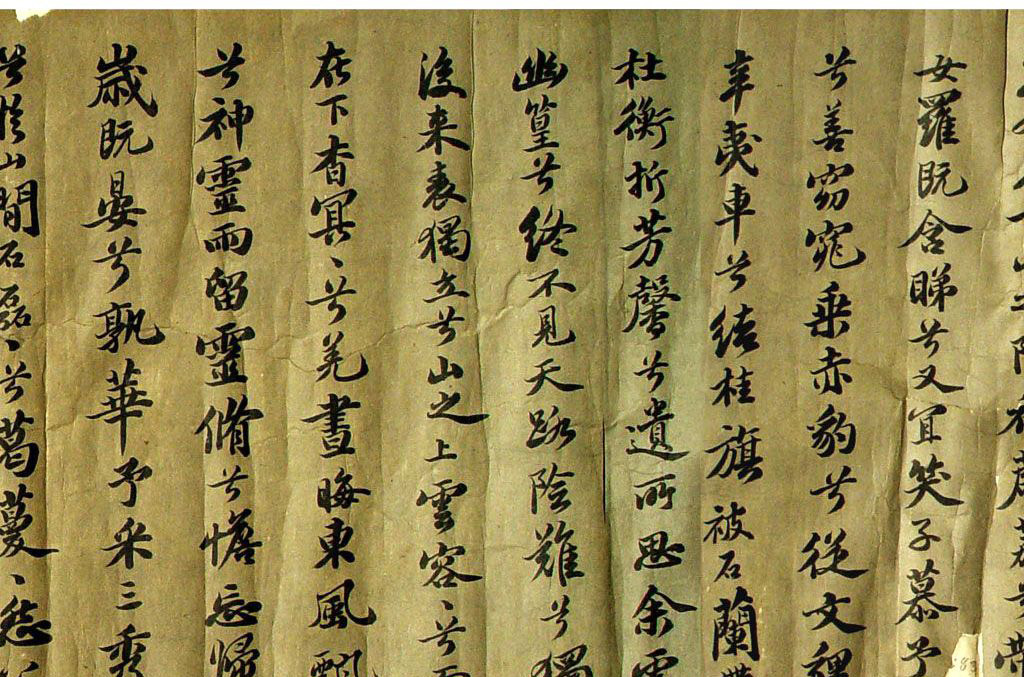 女羅既含睇兮又宜笑子慕予
兮善窈窕乘赤豹兮從文狸
辛夷車兮結桂旗被石蘭
杜衡折芳馨兮遺所思余
幽篁兮終不見天路險難兮獨
後来表獨立兮山之上雲容、兮而
在下杳冥、兮羌晝晦東風飄
兮神靈雨留靈脩兮憺忘歸
歲既晏兮孰華予采三秀
兮於山閒石磊、兮葛蔓、怨